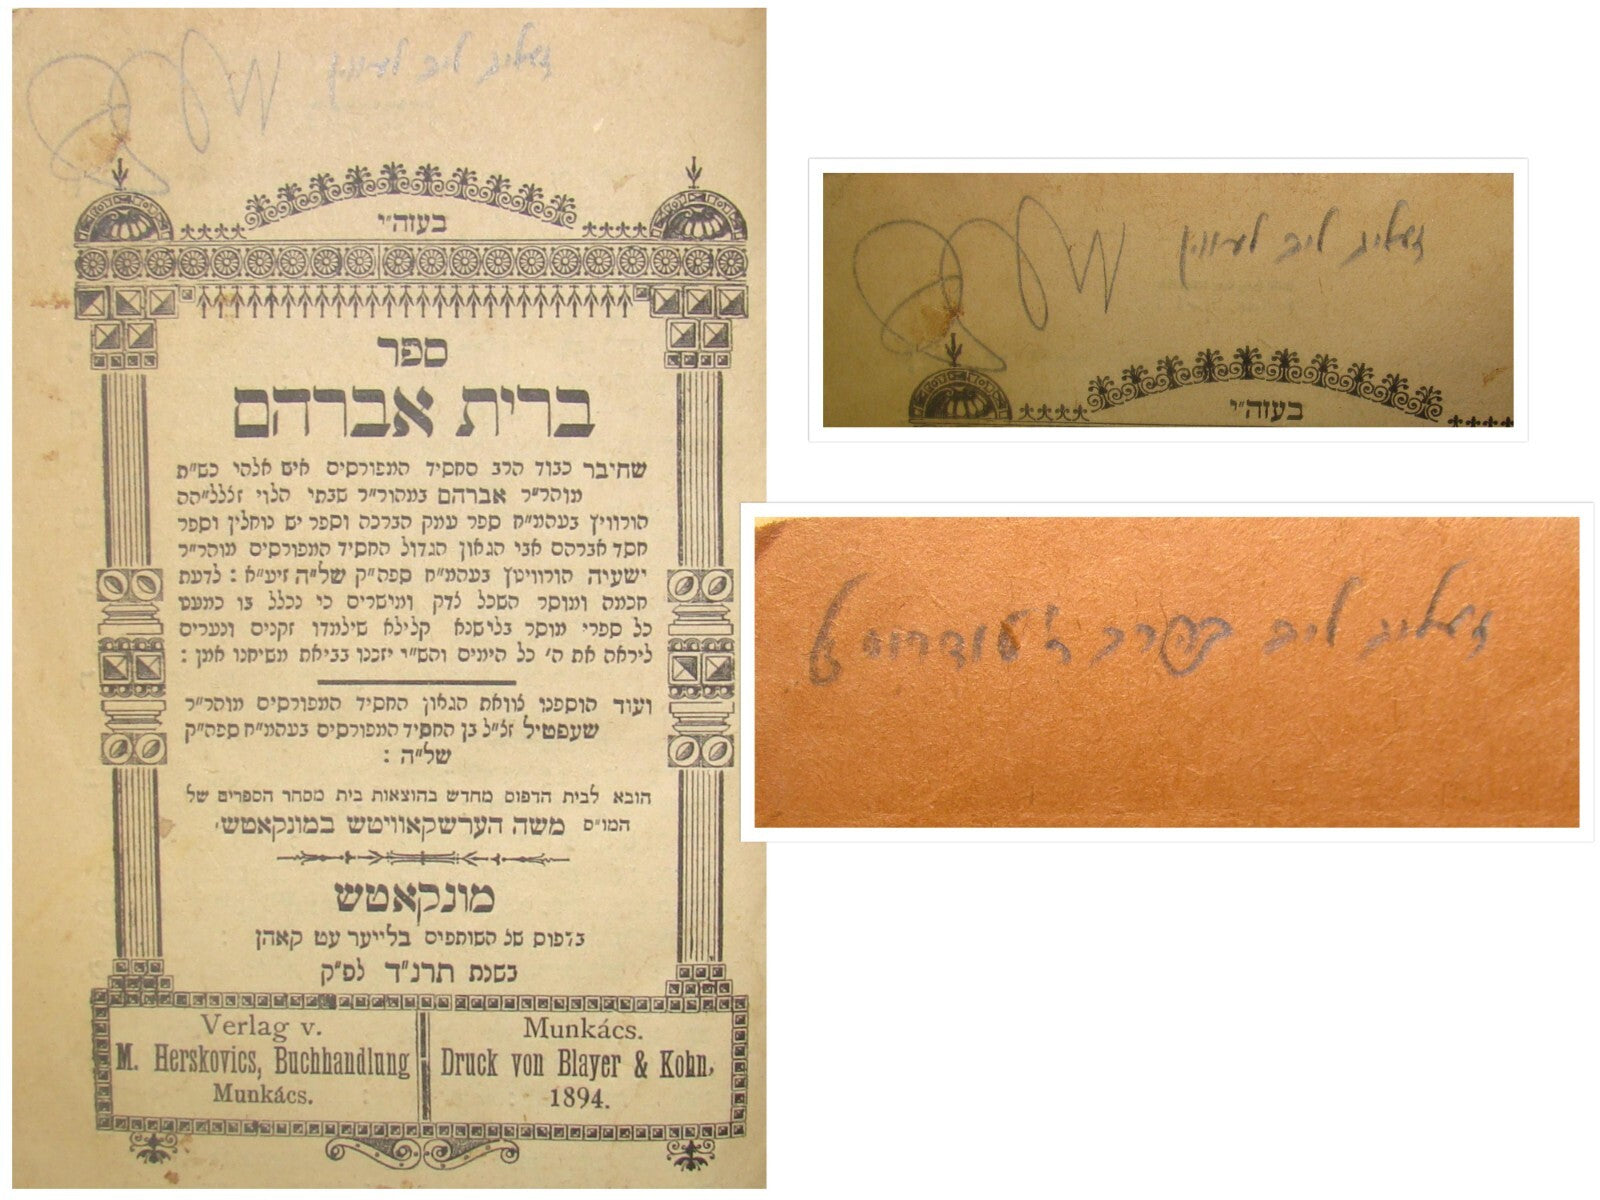 בעזה״י
ספר
ברית אברהם
שחיבר כבוד הרב החסיד המפורסים איש אלהי כש״ת
מוהר״ר אברהם במהור״ר שבתי הלוי זללל״הה
הורוויץ בעהמ״ח ספר עמק הברכה וספר יש נוחלין וספר
חסד אברהם אבי הגאון הגדול החסיד המפורסים מוהר״ר
ישעיה הורוויטץ בעהמ״ח ספה״ק של״ה זיע״א : לדעת
חכמה ומוסר השכל לדק ומישרים כי נכלל בו כמעט
כל ספרי מוסר בלישנא קלילא שילמדו זקנים ונערים
ליראה את ה׳ כל הימים והש״י יזכנו בביאת משיחנו אמן :
ועוד הוספנו צוואת הגאון החסיד המפורסים מוהר״ר
שעפטיל זל״ל בן החסיד המפורסים בעהמ״ח ספה״ק
של״ה :
הובא לבית הדפוס מחדש בהוצאות בית מסחר הספרים של
המו״ס משה הערשקאוויטש במונקאטש׳
מונקאטש
בדפוס של השותפים בלייער עט קאהן
בשנת תרנ״ד לפ״ק
Verlag v.
M. Herskovics, Buchhandlung
Munkács.
Munkács.
Druck von Blayer & Kohn,
1894.
זעליג ליב לעווין
בעזה״י
זעליג ליב